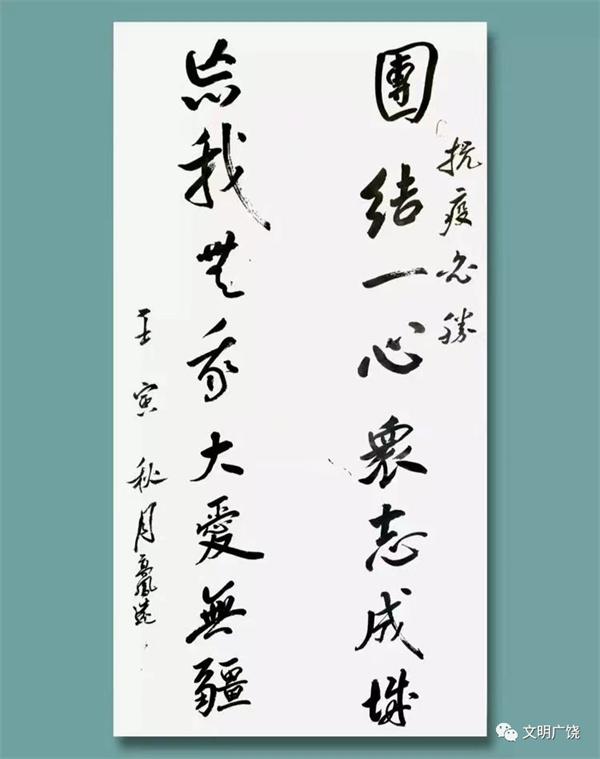 抗疫必勝
團結一心衆志成城
忘我無我大愛無疆
壬寅秋月
文明广饶